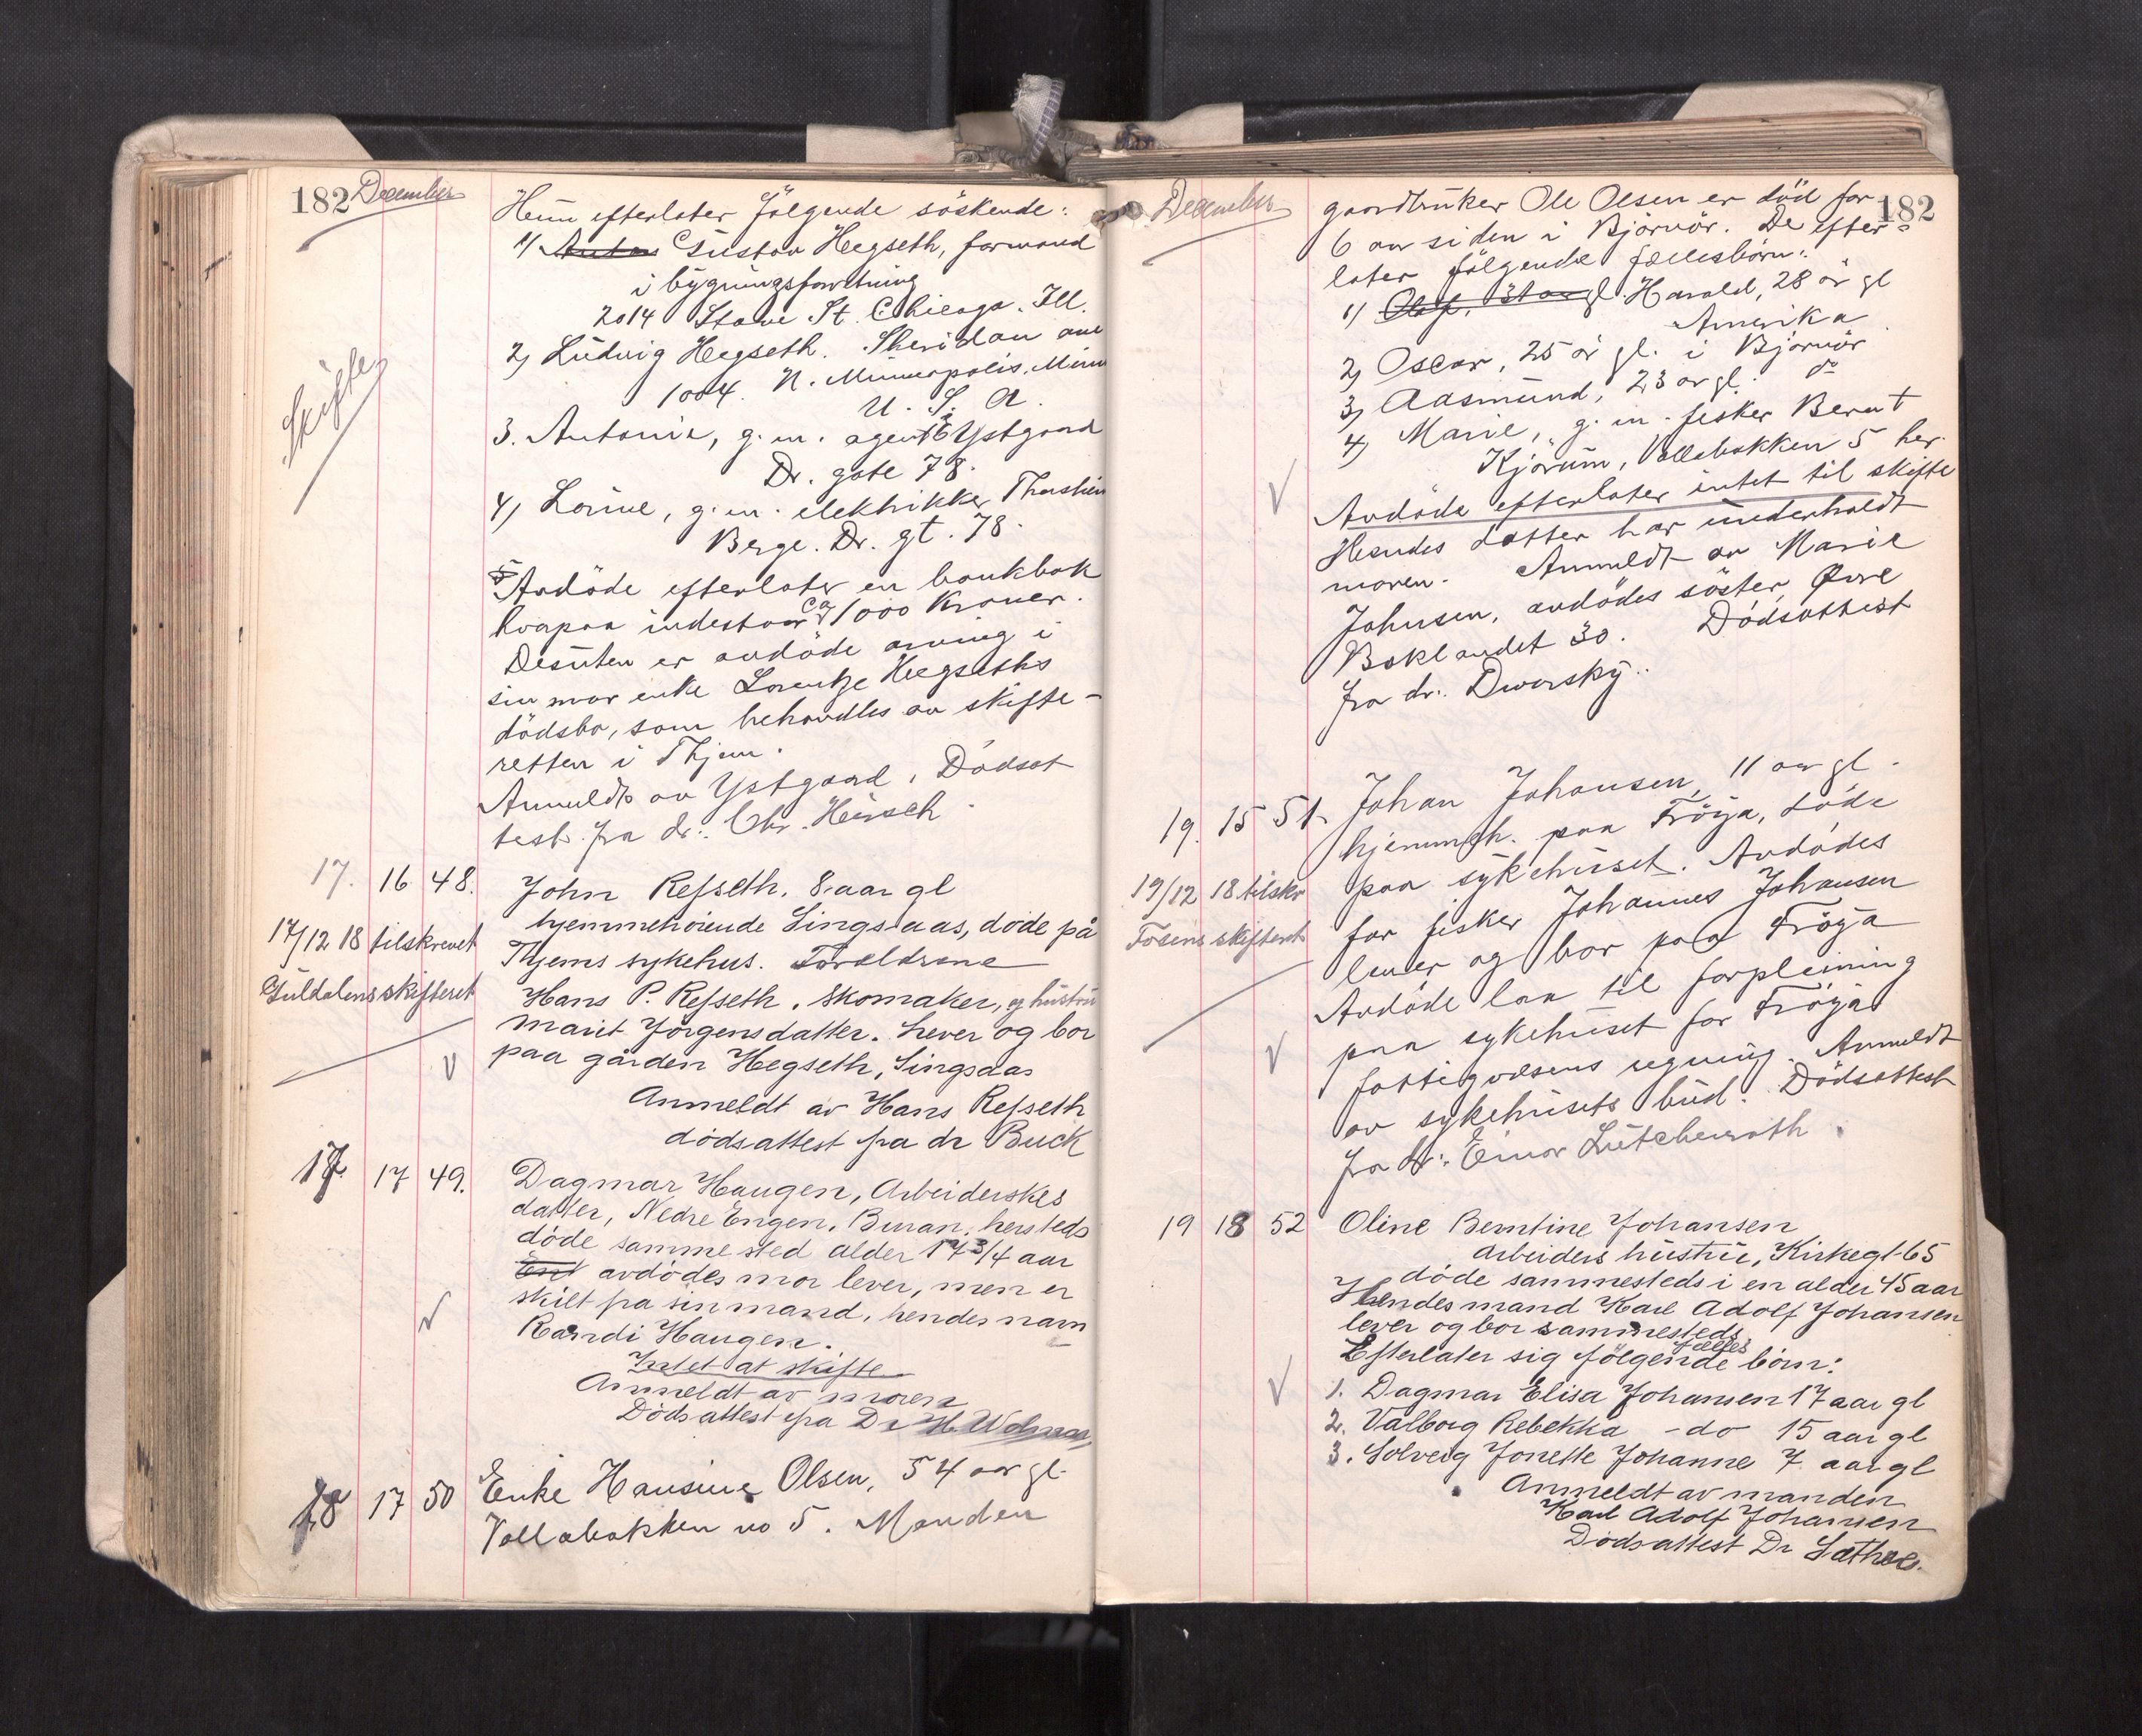 182 December
Hun efterlater følgende söskende:
1) Anton Gustav Hegseth, formand
i bygningsforretning
2014 Stave St. Chicago. Ill.
2) Ludvig Hegseth. Sheridan ave
1004. N. Minneapolis. Minn
U. S. A.
3. Antonie, g. m. agent Ystgaard
Dr. gate 78.
4) Lovine, g. m. elektrikker Thorstein
Berge. Dr. gt. 78.
Skifte
Avdöde efterlater en bankbok
hvorpaa indestaar ca 1000 Kroner.
Desuten er avdöde arving i
sin mor enke Lorentze Hegseths
dödsbo, som behandles av skifte-
retten i Thjem.
Anmeldt av Ystgaard. Dödsat
test fra dr. Chr. Hirsch.
17. 16 48. John Refseth. 8 aar gl
hjemmehörende Singsaas, døde på
17/12 18 tilskrevet
Thjems sykehus. Foreldrene
Guldalens skifteret
Hans P. Refseth. Skomaker, og hustru
Marit Jörgensdatter. Lever og bor
paa gården Hegseth, Singsaas
Anmeldt av Hans Refseth
dödsattest fra dr Buck
17. 17 49. Dagmar Haugen, Arbeiderskes
datter, Nedre Engen, Buran, hersteds
döde samme sted alder 17 3/4 aar
avdödes mor lever, men er
skilt fra sin mand, hendes navn
Randi Haugen.
Intet at skifte
Anmeldt av moren
Dödsattest fra Dr
18 17 50 Enke Hansine Olsen, 54 aar gl.
Vollabakken no 5. Manden
December 182
gaardbruker Ole Olsen er död for
6 aar siden i Björnör. De efter-
later følgende fællesbörn:
1) Harald, 28 år gl
Amerika
2) Oscar, 25 år gl. i Björnör
3) Aasmund, 23 aar gl. do
4) Marie, g. m. fisker Bernt
Kjörum, Vollabakken 5 her.
Avdöde efterlater intet til skifte
Hendes datter har underholdt
moren. Anmeldt av Marie
Johnsen, avdödes söster, Övre
Baklandet 30. Dödsattest
fra dr. Dworsky.
19. 15 51. Johan Johansen, 11 aar gl.
hjemmeh. paa Fröya, döde
paa sykehuset. Avdödes
19/12 18 tilskr
far fisker Johannes Johansen
Fosens skifteret
lever og bor paa Fröya
Avdöde laa til forpleining
paa sykehuset for Fröya
fattigvæsens regning. Anmeldt
av sykehusets bud. Dödsattest
fra dr. Einar Lütcherath.
19 18 52 Oline Berntine Johansen
arbeiders hustru, Kirkegt 65
döde sammesteds i en alder 45 aar
Hendes mand Karl Adolf Johansen
lever og bor sammesteds
Efterlater sig følgende fælles börn:
1. Dagmar Elisa Johansen 17 aar gl
2. Valborg Rebekka - do 15 aar gl
3. Solveig Jonette Johanne 7 aar gl
Anmeldt av manden
Karl Adolf Johansen
Dödsattest Dr